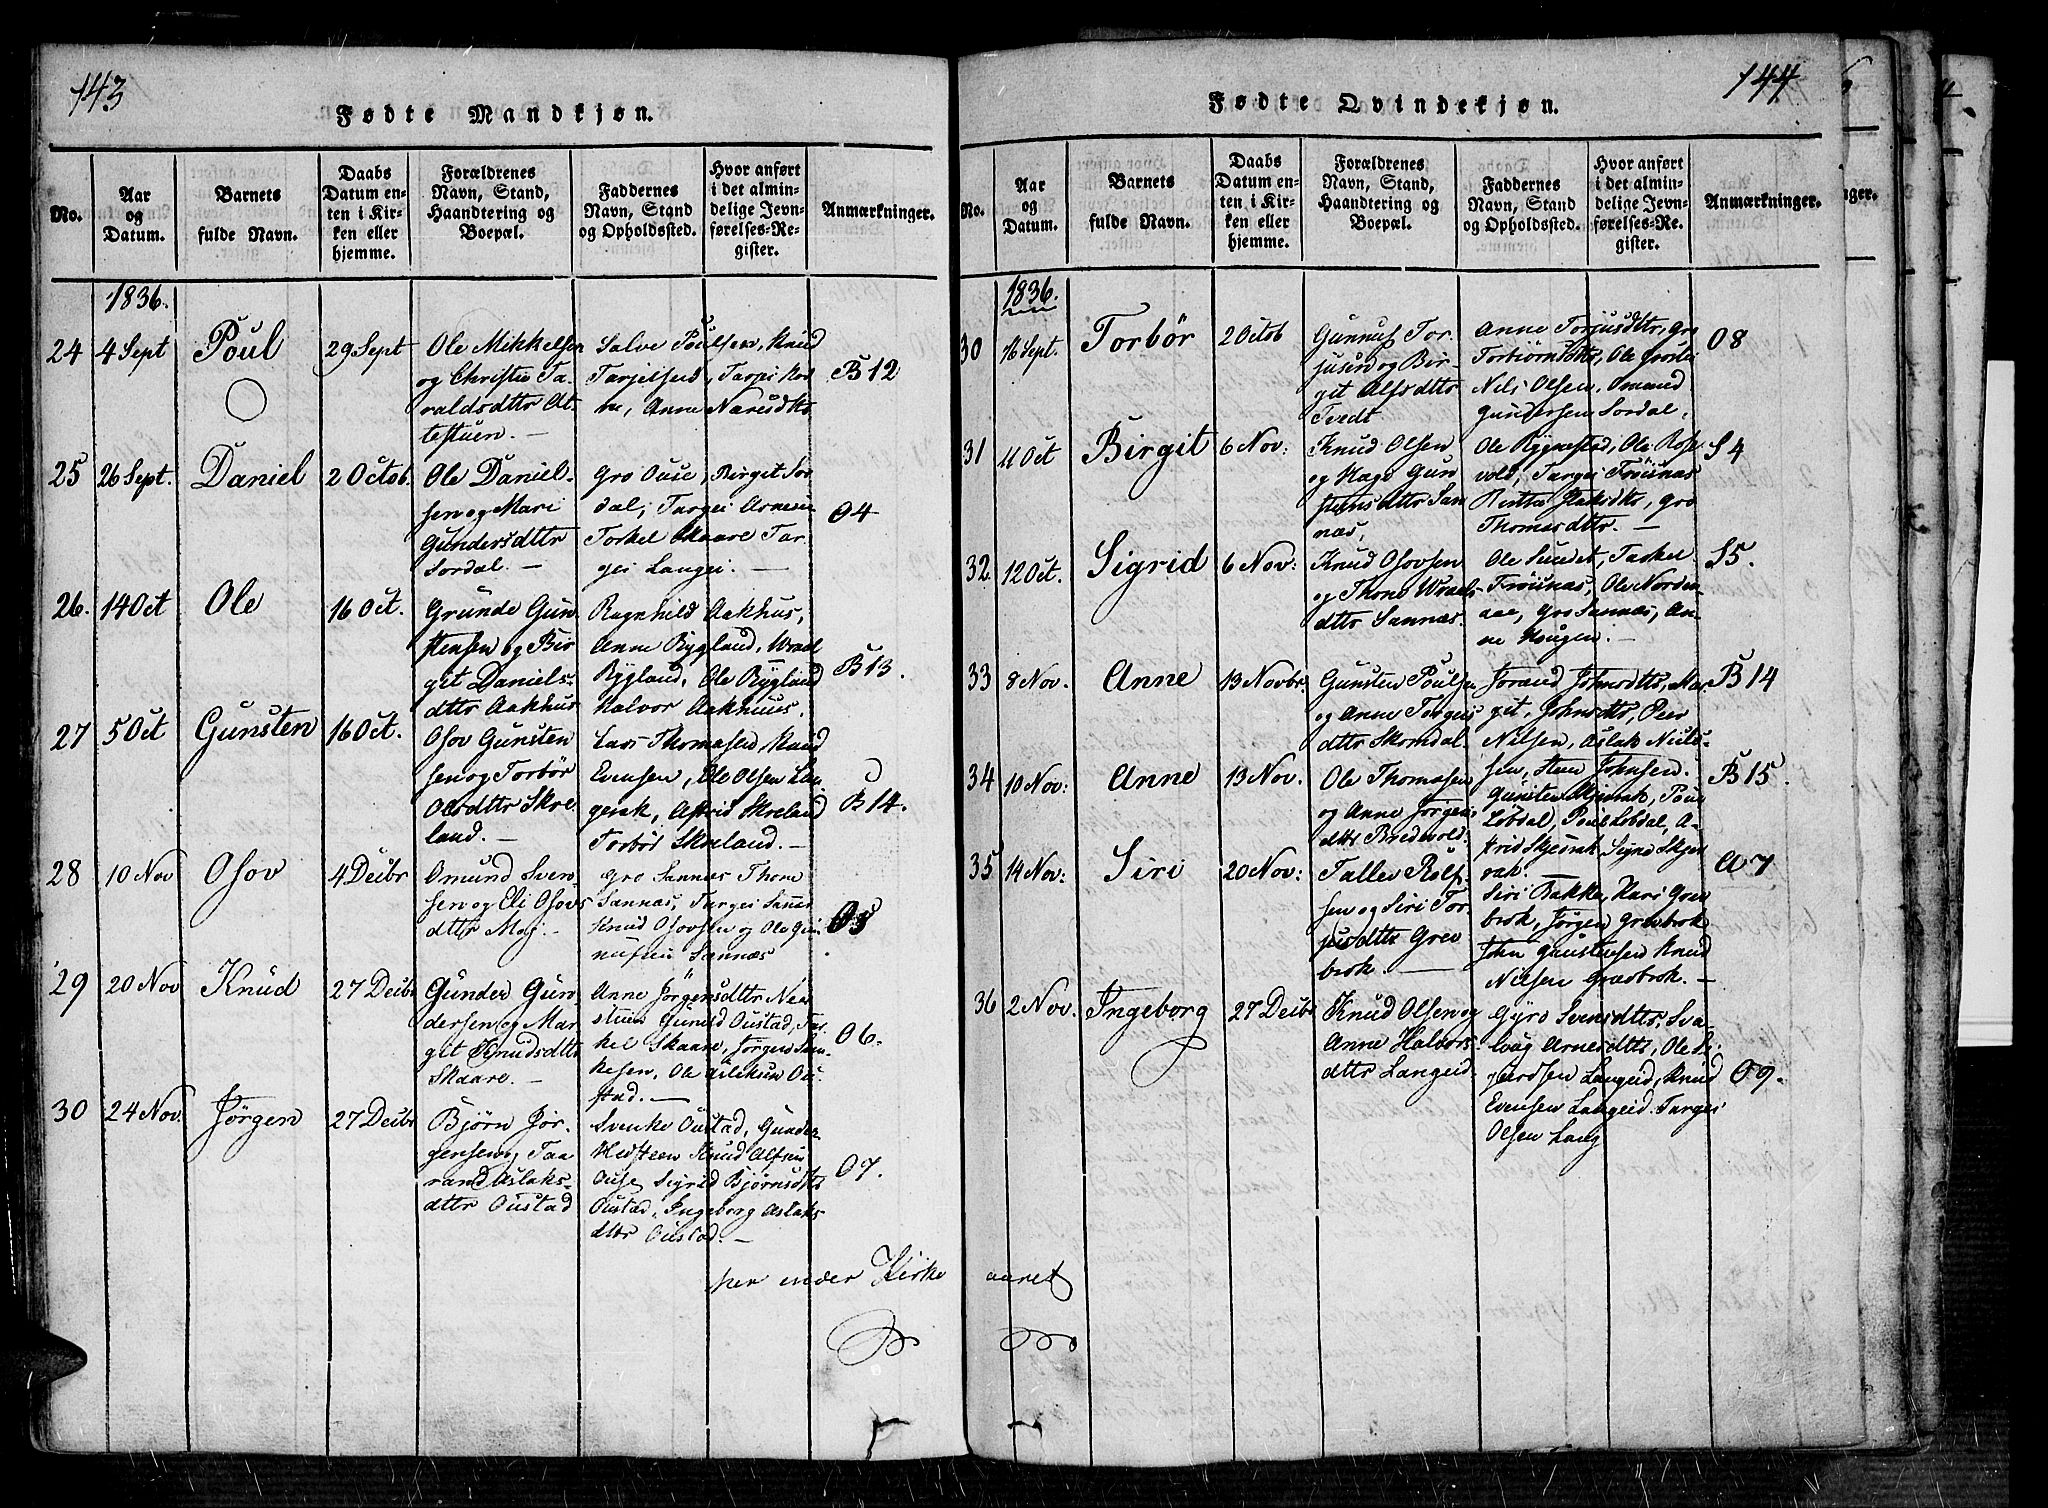 143
Fødte Mandkjøn.
No.
Aar
og
Datum.
Barnets
fulde Navn.
Daabs
Datum en-
ten i Kir-
ken eller
hjemme.
Forældrenes
Navn, Stand,
Haandtering og
Boepæl.
Faddernes
Navn, Stand
og Opholdssted.
Hvor anført
i det almin-
delige Jevn-
førelses-Re-
gister.
Anmærkninger.
1836.
24
4 Sept
Poul
29 Sept
Ole Mikkelsen
og Christie Ta-
raldsdttr At-
testuen. —
Salve Poulsen, Knud
Tarjeisen, Targei
Anne
B 12
25
26 Sept.
Daniel
2 Octob.
Ole Daniel-
sen og Mari
Gundersdttr
Sordal. —
Gro Ouse, Birget Sor-
dal, Targei
Torkel Skaare Tar-
gei Langei. —
O4
26.
14 Oct
Ole
16 Oct.
Grunde Gun-
stensen og Bir
git Daniels-
dttr Aakhus
Ragnhild Aakhus,
Anne Rygland, Wraal
Rygland, Ole Rygland
Halvor Aakhuus.
B 13.
27
5 Oct
Gunsten
16 Oct.
Osov Gunsten
sen og Torbør
Olsdttr Skre-
land. —
Lars Thomasen, Knud
Evensen, Ole Olsen Lan-
gerak, Astrid Skreland
Torbør Skreland. —
B 14.
28
10 Nov
Osov
4 Decbr
Omund Sven-
sen og Eli Osovs
dttr Moj. —
Gro Sannes Thom
Sannas, Targei
Knud Osovsen og Ole
Sannæs
O5
29
20 Nov
Knud
27 Decbr
Gunder Gun-
dersen og Mar-
git Knudsdttr
Skaare. —
Anne Jørgensdttr
Gunild Oustad, Tar-
kel Skaare, Jørgen
Ole Ou-
stad. —
O6.
30
24 Nov.
Jørgen
27 Decbr
Bjørn Jør-
gensen og Taa-
rand Aslaks-
dttr Oustad
Svenke Oustad, Gunder
Knud Alfsen
Ouse Sigrid Bjørnsdttr
Oustad, Ingeborg Aslaks
dttr Oustad. —
O7.
her ender Kirke aaret
144
Fødte Qvindekjøn.
No.
Aar
og
Datum.
Barnets
fulde Navn.
Daabs
Datum en-
ten i Kir-
ken eller
hjemme.
Forældrenes
Navn, Stand,
Haandtering og
Boepæl.
Faddernes
Navn, Stand
og Opholdssted.
Hvor anført
i det almin-
delige Jevn-
førelses-Re-
gister.
Anmærkninger.
1836.
30
16 Sept.
Torbör
2 Octob
Gunnuf Tor-
jusen og Bir-
git Alfsdttr
Tvedt
Anne Torjusdttr, Gro
Torbiörnsdttr, Ole
Nils Olsen, Omund
Gundersen Sordal,
O8
31
11 Oct
Birgit
6 Nov:
Knud Olsen
og Hage Gun
stensdttr San
næs,
Ole Rygnestad, Ole Ros-
vold, Targei Fröisnæs
Gro
Thomasdttr. —
S4
32
12 Oct.
Sigrid
6 Nov:
Knud Osovsen
og Thone Wraals-
dttr Sannæs.
Ole Sundet, Tarkel
Fröisnæs, Ole Norden-
aae, Gro Sannæs, An-
ne Haugen. —
S5.
33
8 Nov.
Anne
13 Novbr.
Gunsten Poulsen
og Anne Targeis
dttr Skomdal.
Jorand Johnsdttr, Mar
git, Johnsdttr, Peer
Nilsen, Aslak Niels-
sen, Steen Johnsen.
B 14
34
10 Nov:
Anne
13 Nov.
Ole Thomasen
og Anne Jørgens
dttr Bredvold.
Gunsten Poul
Löbdal, Poul Löbdal, A-
strid Signe
B 15.
35
14 Nov:
Siri
20 Nov:
Tallev Rolf-
sen og Siri Tor-
jusdttr Grev
brok. —
Siri Bakke, Kari Grev
brok, Jørgen Grevbrok
John Gunstensen Knud
Nilsen Grevbrok. —
A7
36
2 Nov.
Ingeborg
27 Decbr
Knud Olsen og
Anne Halvors-
dttr Langeid.
Gyro Svensdttr, Sva
laug Arnesdttr, Ole
Langeid, Knud
Evensen Langeid. Targei
Olsen Lang
O9.